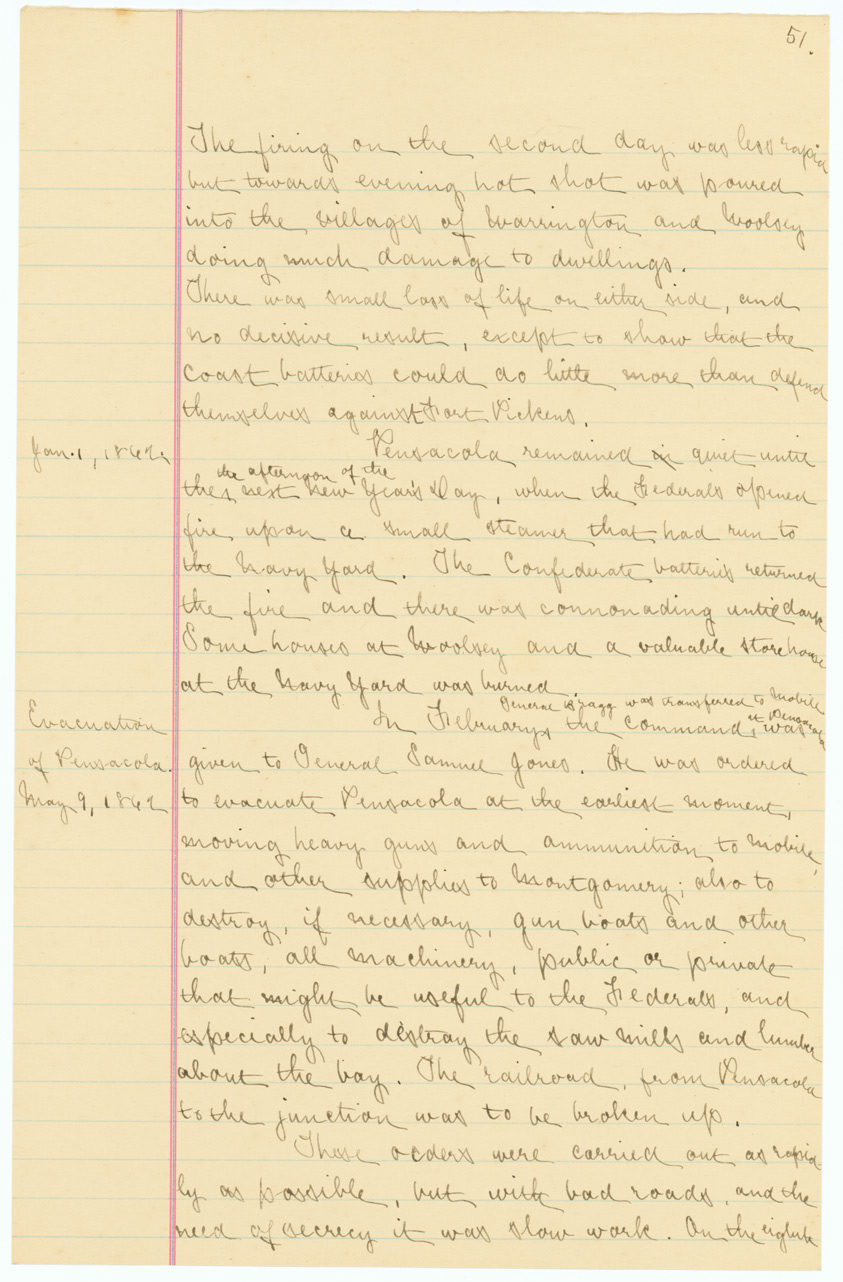 51.
The firing on the second day was less rapid
but towards evening hot shot was poured
into the villages of Warrington and Woolsey
doing much damage to dwellings.
There was small loss of life on either side, and
no decisive result, except to show that the
coast batteries could do little more than defend
themselves against Fort Pickens.
Jan. 1, 1862.
Pensacola remained in quiet until
the afternoon of the
the next New Year's Day, when the Federals opened
fire upon a small steamer that had run to
the Navy Yard. The Confederate batteries returned
the fire and there was connonading until dark
Some houses at Woolsey and a valuable storehouse
at the Navy Yard was burned.
General Bragg was transferred to Mobile
Evacuation
of Pensacola.
May 9, 1862
In February, the command, at Pensacola was
given to General Samuel Jones. He was ordered
to evacuate Pensacola at the earliest moment,
moving heavy guns and ammunition to Mobile,
and other supplies to Montgomery; also to
destroy, if necessary, gun boats and other
boats, all machinery, public or private
that might be useful to the Federals, and
especially to destroy the saw mills and lumber
about the bay. The railroad, from Pensacola
to the junction was to be broken up.
These orders were carried out as rapid-
ly as possible, but with bad roads, and the
need of secrecy it was slow work. On the eighth